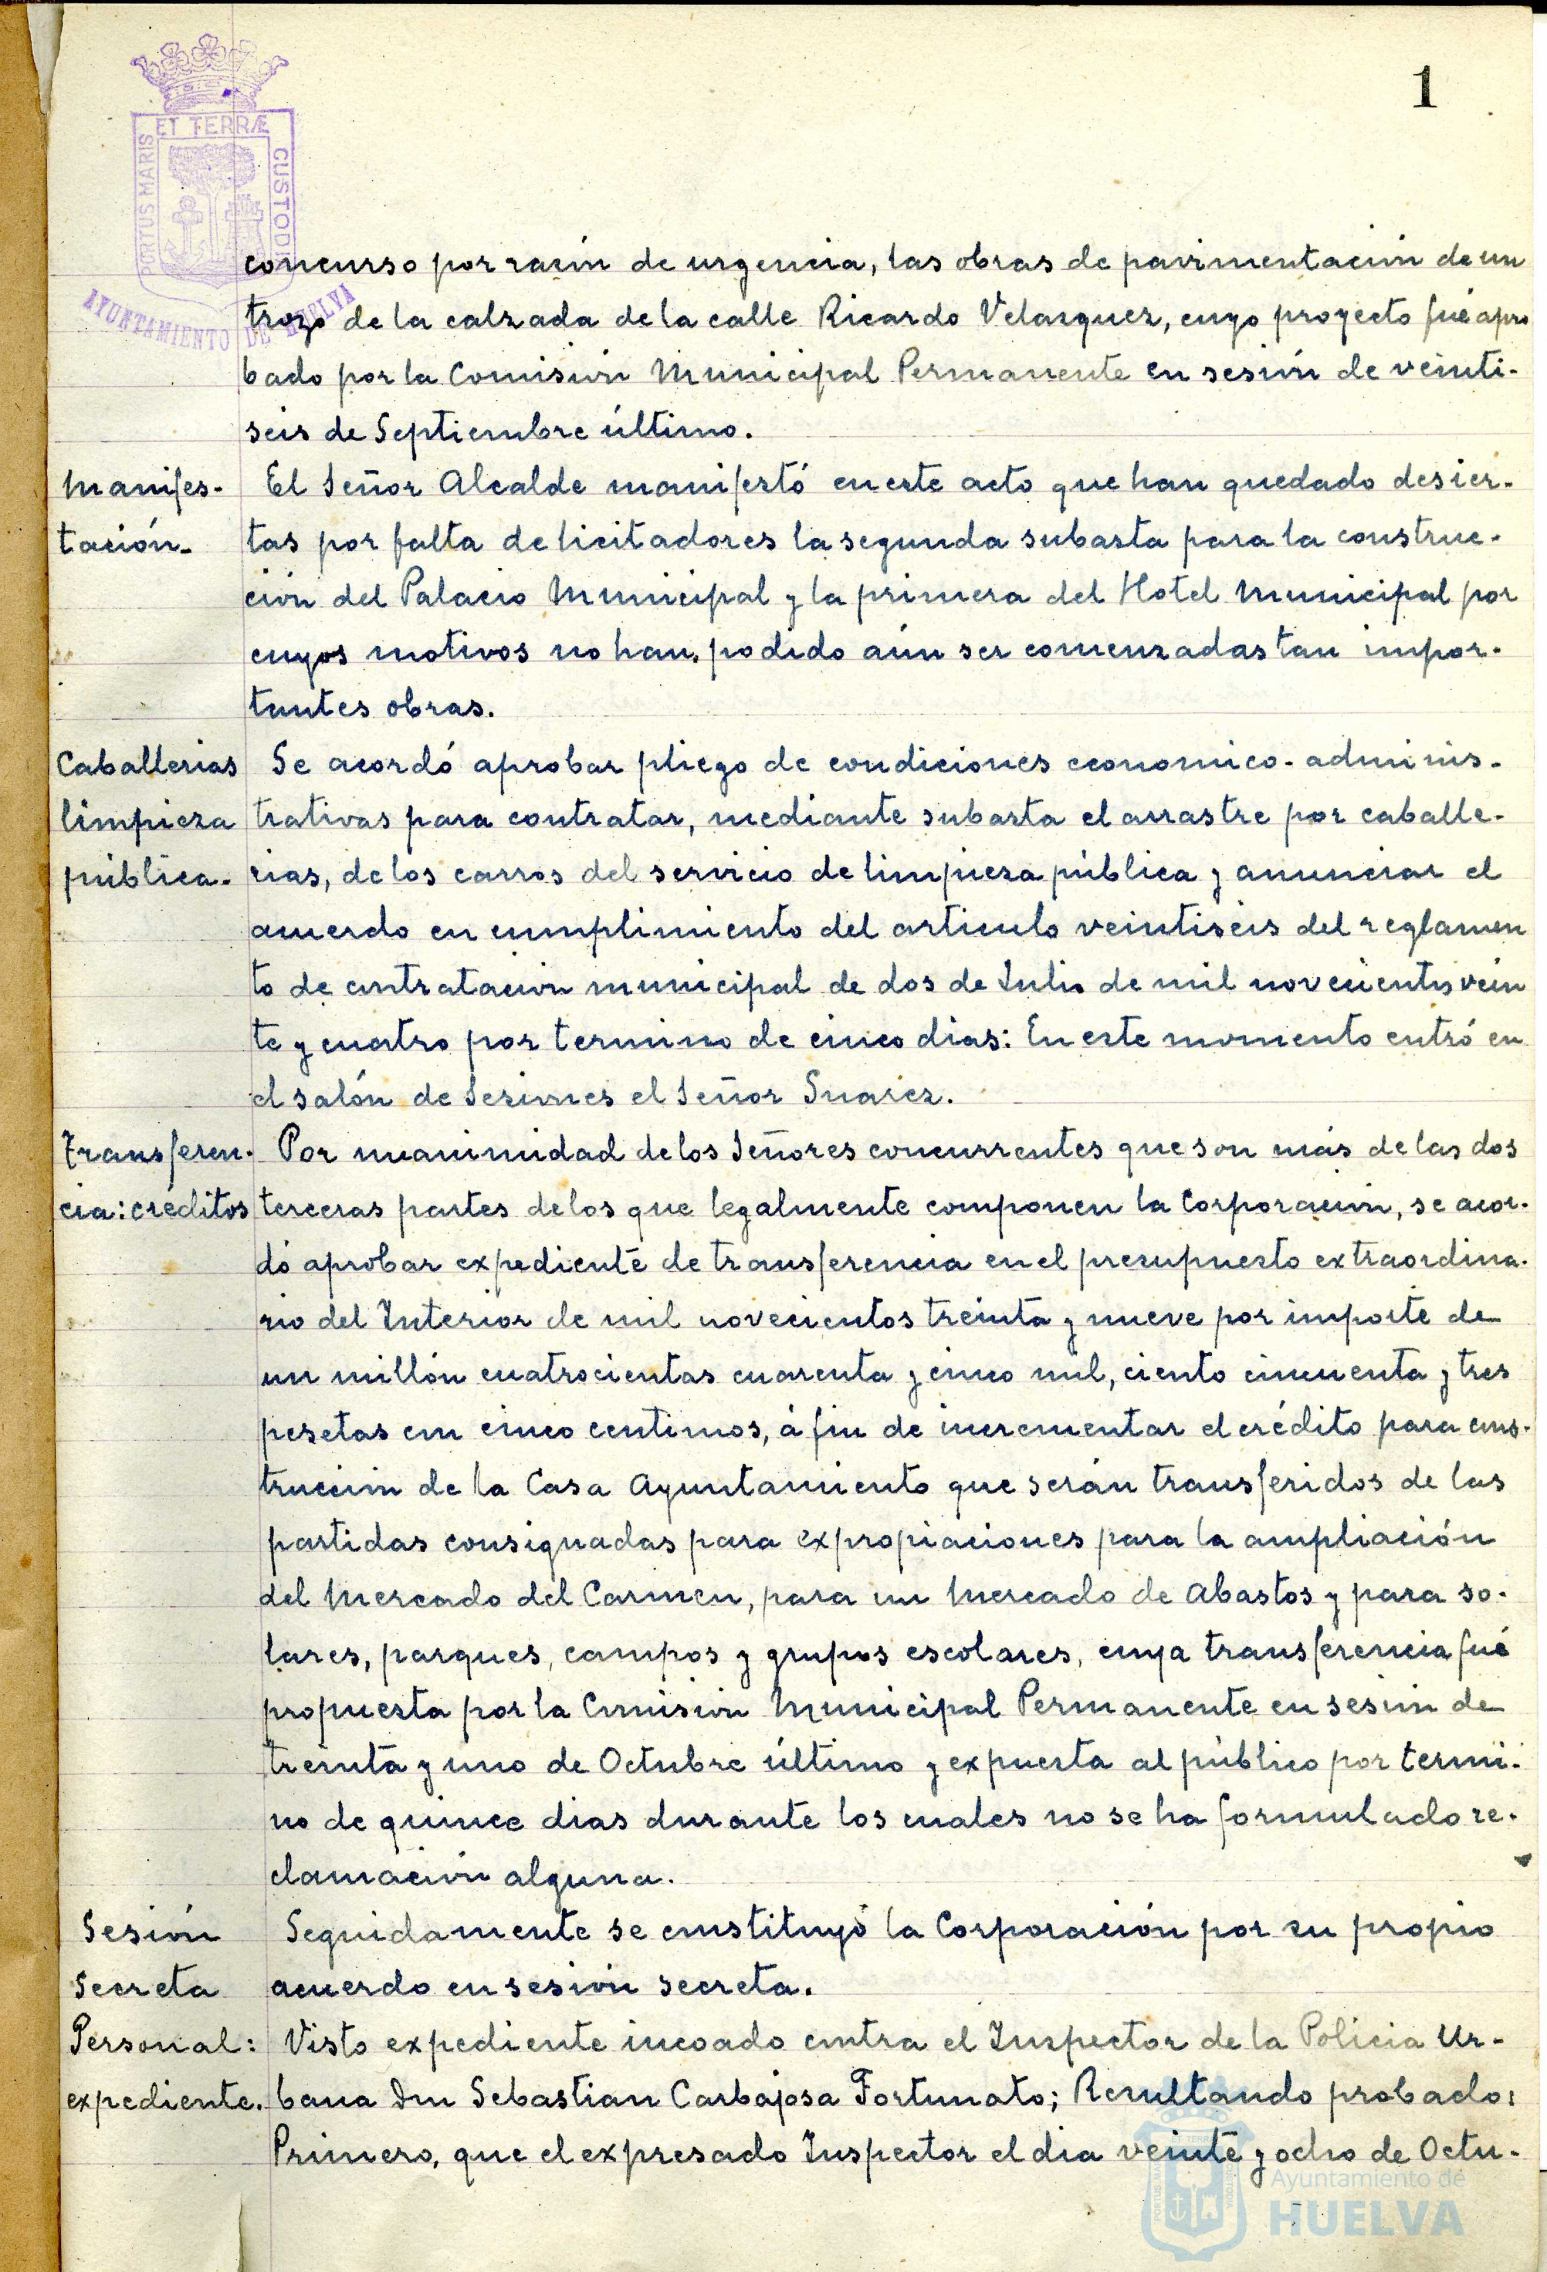 1
PORTUS MARIS ET TERRÆ CUSTODIA
AYUNTAMIENTO DE HUELVA
concurso por razón de urgencia, las obras de pavimentación de un
trozo de la calzada de la calle Ricardo Velazquez, cuyo proyecto fué apro
bado por la Comisión Municipal Permanente en sesión de veinti-
seis de Septiembre último.
Manifes- El Señor Alcalde manifestó en este acto que han quedado desier-
tación- tas por falta de licitadores la segunda subasta para la construc-
ción del Palacio Municipal y la primera del Hotel Municipal por
cuyos motivos no han podido aún ser comenzadas tan impor-
tantes obras.
Caballerias Se acordó aprobar pliego de condiciones economico-adminis-
limpieza trativas para contratar, mediante subasta el arrastre por caballe-
pública- rias, de los carros del servicio de limpieza pública y anunciar el
acuerdo en cumplimiento del articulo veintiseis del reglamen
to de contratación municipal de dos de Julio de mil novecientos vein
te y cuatro por termino de cinco dias: En este momento entró en
el salón de Sesiones el Señor Suarez.
Transferen- Por unanimidad de los Señores concurrentes que son más de las dos
cia: créditos terceras partes de los que legalmente componen la Corporación, se acor-
dó aprobar expediente de transferencia en el presupuesto extraordina-
rio del Interior de mil novecientos treinta y nueve por importe de
un millón cuatrocientas cuarenta y cinco mil, ciento cincuenta y tres
pesetas con cinco centimos, á fin de incrementar el crédito para cons-
trucción de la Casa Ayuntamiento que serán transferidos de las
partidas consignadas para expropiaciones para la ampliación
del Mercado del Carmen, para un Mercado de Abastos y para so-
lares, parques, campos y grupos escolares, cuya transferencia fué
propuesta por la Comisión Municipal Permanente en sesión de
treinta y uno de Octubre último y expuesta al público por termi-
no de quince dias durante los cuales no se ha formulado re-
clamación alguna.
Sesión Seguidamente se constituyó la Corporación por su propio
Secreta acuerdo en sesión secreta.
Personal: Visto expediente incoado contra el Inspector de la Policia Ur-
expediente. bana Don Sebastian Carbajosa Fortunato; Resultando probado:
Primero, que el expresado Inspector el dia veinte y ocho de Octu-
Ayuntamiento de
HUELVA